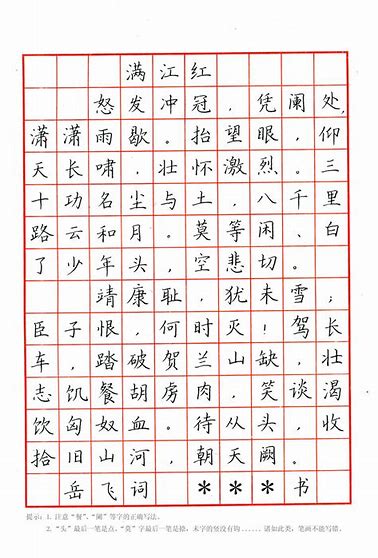 满江红
怒发冲冠，凭阑处，
潇潇雨歇。抬望眼，仰
天长啸，壮怀激烈。三
十功名尘与土，八千里
路云和月。莫等闲、白
了少年头，空悲切。
靖康耻，犹未雪；
臣子恨，何时灭！驾长
车，踏破贺兰山缺，壮
志饥餐胡虏肉，笑谈渴
饮匈奴血。待从头，收
拾旧山河，朝天阙。
岳飞词　＊＊＊书
提示：1. 注意“餐”、“阑”等字的正确写法。
2. “头”最后一笔是点，“莫”字最后一笔是捺，未字的竖没有钩……诸如此类，笔画不能写错。